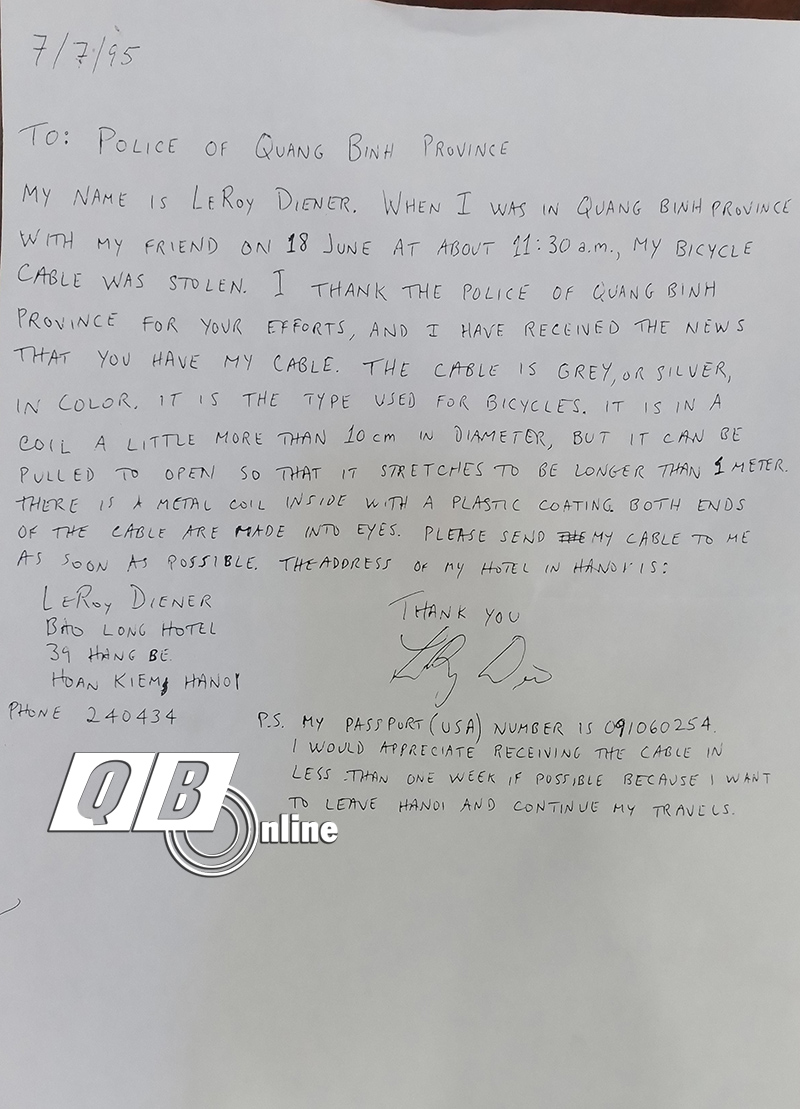 7/7/95
TO: POLICE OF QUANG BINH PROVINCE
MY NAME IS LEROY DIENER. WHEN I WAS IN QUANG BINH PROVINCE
WITH MY FRIEND ON 18 JUNE AT ABOUT 11:30 a.m., MY BICYCLE
CABLE WAS STOLEN. I THANK THE POLICE OF QUANG BINH
PROVINCE FOR YOUR EFFORTS, AND I HAVE RECEIVED THE NEWS
THAT YOU HAVE MY CABLE. THE CABLE IS GREY, OR SILVER,
IN COLOR. IT IS THE TYPE USED FOR BICYCLES. IT IS IN A
COIL A LITTLE MORE THAN 10 cm IN DIAMETER, BUT IT CAN BE
PULLED TO OPEN SO THAT IT STRETCHES TO BE LONGER THAN 1 METER.
THERE IS A METAL COIL INSIDE WITH A PLASTIC COATING. BOTH ENDS
OF THE CABLE ARE MADE INTO EYES. PLEASE SEND MY CABLE TO ME
AS SOON AS POSSIBLE. THE ADDRESS OF MY HOTEL IN HANOI IS:
LEROY DIENER
BAO LONG HOTEL
39 HANG BE
HOAN KIEM, HANOI
PHONE 240434
THANK YOU
P.S. MY PASSPORT (USA) NUMBER IS 091060254.
I WOULD APPRECIATE RECEIVING THE CABLE IN
LESS THAN ONE WEEK IF POSSIBLE BECAUSE I WANT
TO LEAVE HANOI AND CONTINUE MY TRAVELS.
QB Online